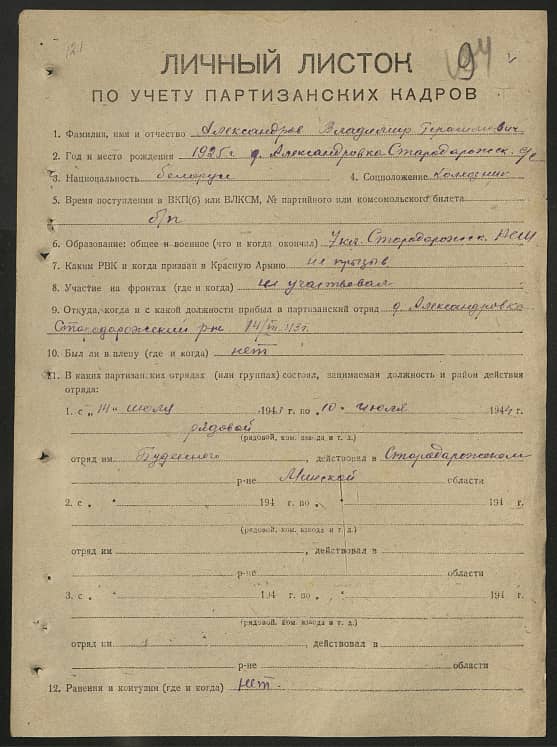 121
94
ЛИЧНЫЙ ЛИСТОК
ПО УЧЕТУ ПАРТИЗАНСКИХ КАДРОВ
1. Фамилия, имя и отчество Александров Владимир Герасимович
2. Год и место рождения 1925 г д. Александровка Стародорожск. р/с
3. Национальность белорус 4. Соцположение колхозник
5. Время поступления в ВКП(б) или ВЛКСМ, № партийного или комсомольского билета
б/п
6. Образование: общее и военное (что и когда окончил) 7 кл. Стародорожск. НСШ
7. Каким РВК и когда призван в Красную Армию не призыв
8. Участие на фронтах (где и когда) не участвовал
9. Откуда, когда и с какой должности прибыл в партизанский отряд д. Александровка
Стародорожский р-н 14/VII-43г.
10. Был ли в плену (где и когда) нет
11. В каких партизанских отрядах (или группах) состоял, занимаемая должность и район действия
отряда:
1. с „14" июля 1943 г. по „10" июля 1944 г.
рядовой
(рядовой, ком. взвода и т. д.)
отряд им Буденного, действовал в Стародорожском
р-не Минской области
2. с „ " 194 г. по „ " 194 г.
(рядовой, ком. взвода и т. д.)
отряд им , действовал в
р-не области
3. с „ " 194 г. по „ " 194 г.
(рядовой, ком. взвода и т. д.)
отряд им , действовал в
р-не области
12. Ранения и контузии (где и когда) нет.